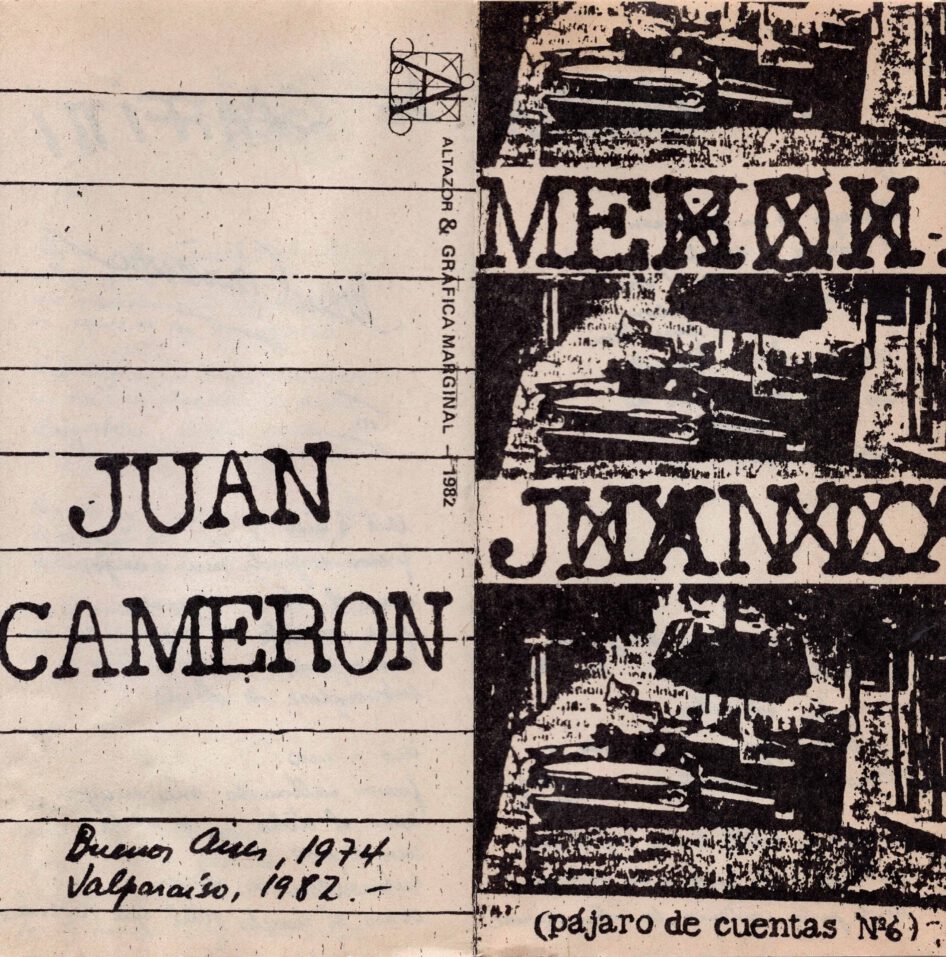 A
ALTAZOR & GRÁFICA MARGINAL — 1982
JUAN
CAMERON
Buenos Aires, 1974
Valparaíso, 1982.—
MERON
JUAN
(pájaro de cuentas Nº6)